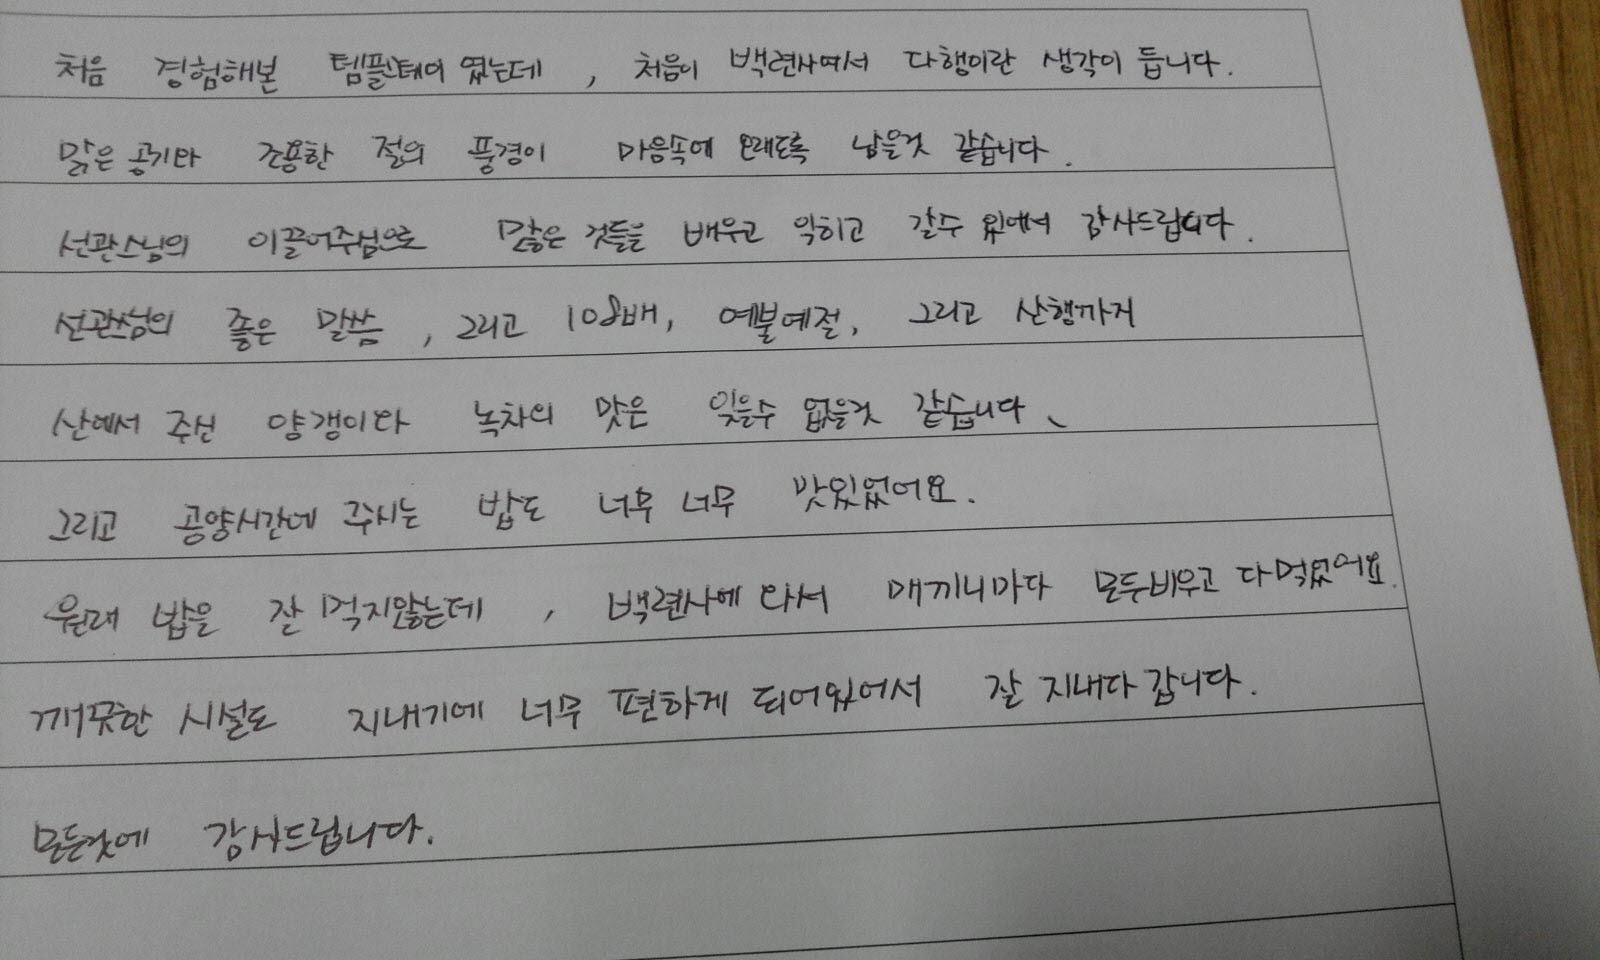 처음 경험해본 템플테이 였는데, 처음이 백련사여서 다행이란 생각이 듭니다.
맑은 공기와 조용한 절의 풍경이 마음속에 오래도록 남을것 같습니다.
선관스님의 이끌어주심으로 많은 것들을 배우고 익히고 갈수 있에서 감사드립니다.
선관스님의 좋은 말씀, 그리고 108배, 예불예절, 그리고 산행까지
산에서 주신 양갱이와 녹차의 맛은 잊을수 없을것 같습니다.
그리고 공양시간에 주시는 밥도 너무 너무 맛있었어요.
원래 밥을 잘 먹지않는데, 백련사에 와서 매끼니마다 모두비우고 다먹었어요.
깨끗한 시설도 지내기에 너무 편하게 되어있어서 잘 지내다 갑니다.
모든것에 감사드립니다.